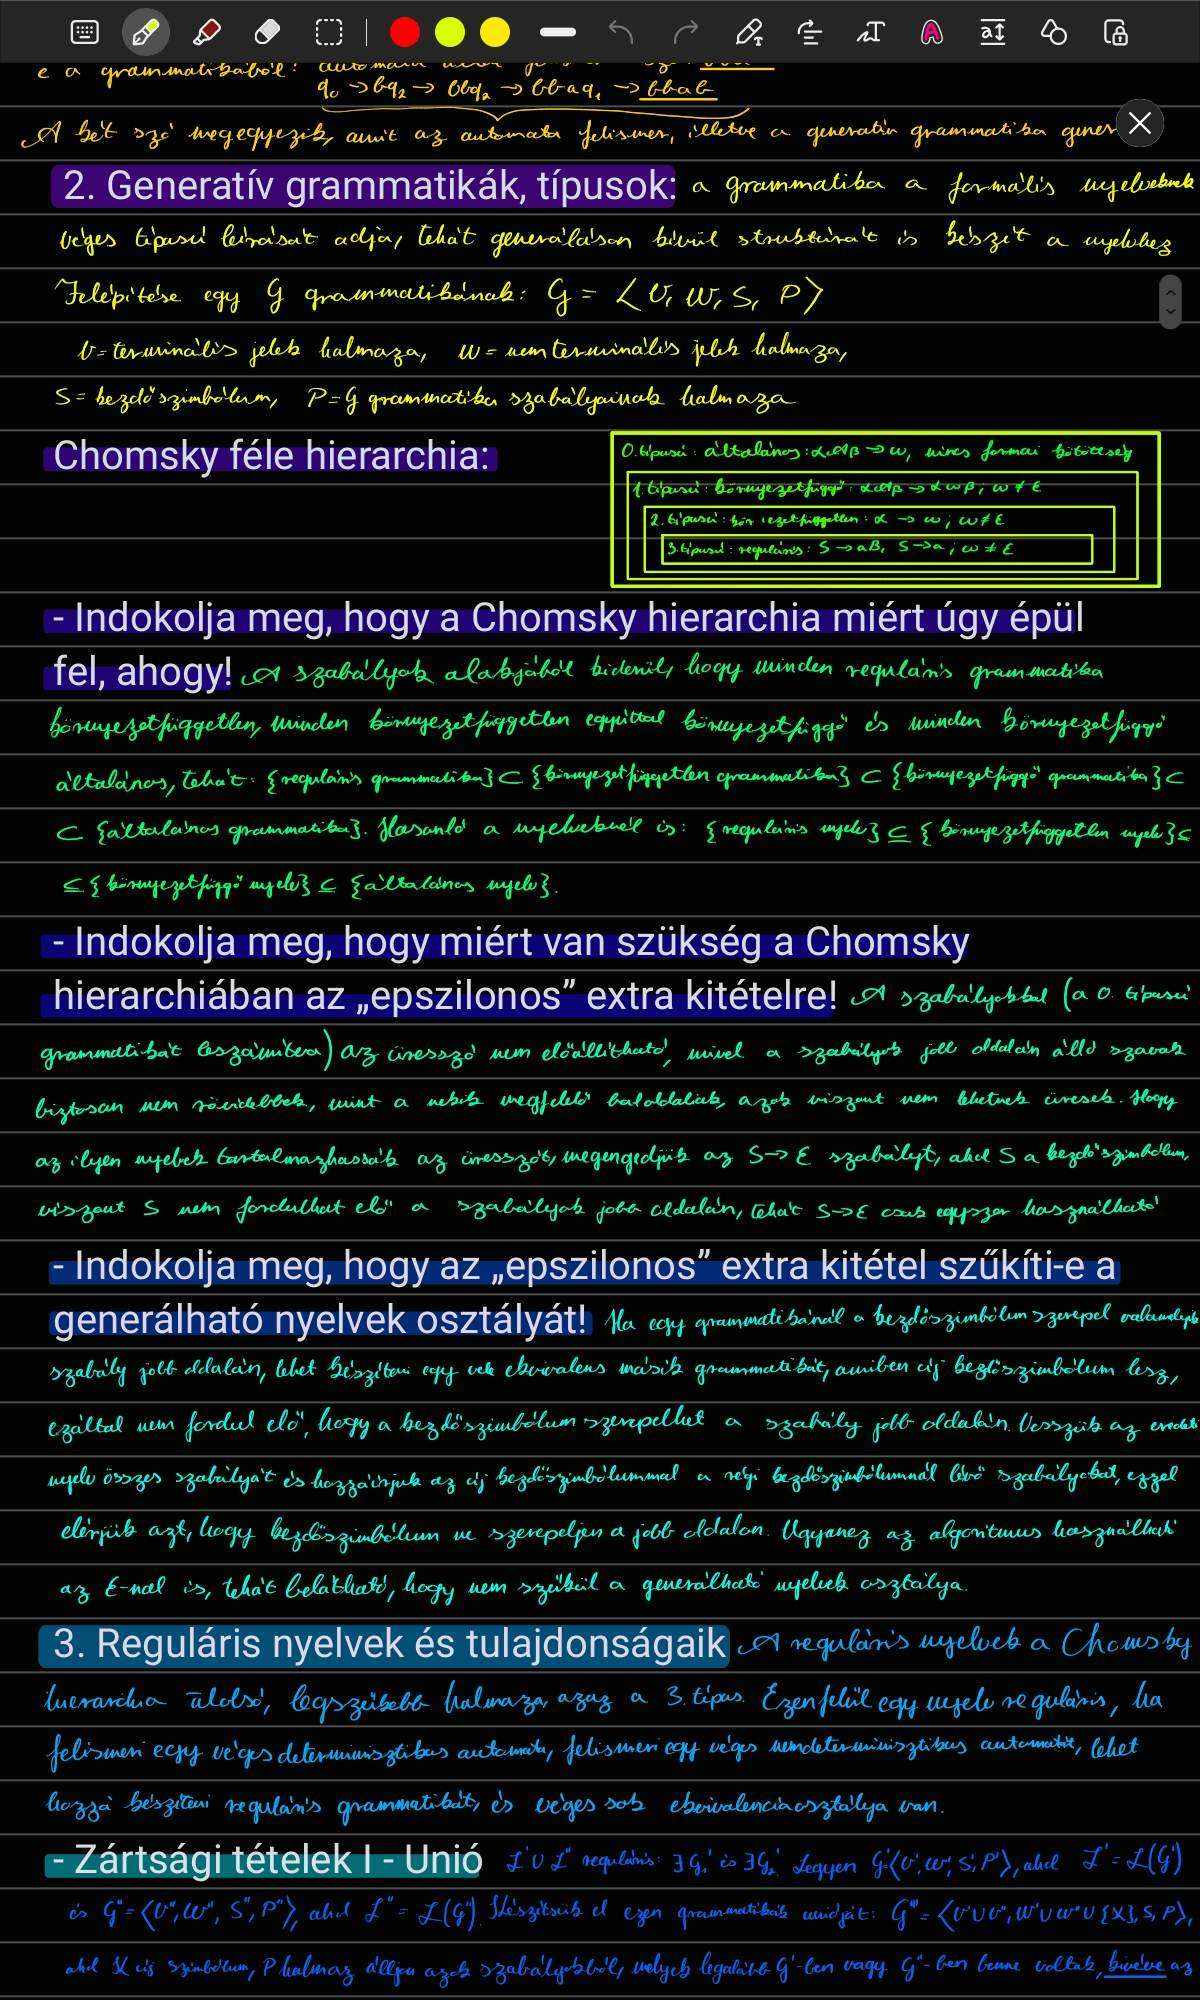 e a grammatikából?
q₀ → bq₂ → bbq₂ → bbaq₁ → bbab
A két szó megegyezik, amit az automata felismer, illetve a generatív grammatika gener
2. Generatív grammatikák, típusok: a grammatika a formális nyelveknek
véges típusú leírását adja, tehát generáláson kívül struktúrát is készít a nyelvhez
Felépítése egy G grammatikának: G = ⟨V, W, S, P⟩
V = terminális jelek halmaza, W = nemterminális jelek halmaza,
S = kezdőszimbólum, P = G grammatika szabályainak halmaza
Chomsky féle hierarchia:
0. típusú: általános: αAβ → ω, nincs formai kötöttség
1. típusú: környezetfüggő: αAβ → αωβ; ω ≠ ε
2. típusú: környezetfüggetlen: α → ω; ω ≠ ε
3. típusú: reguláris: S → aB, S → a; ω ≠ ε
- Indokolja meg, hogy a Chomsky hierarchia miért úgy épül
fel, ahogy! A szabályok alakjából kiderül, hogy minden reguláris grammatika
környezetfüggetlen, minden környezetfüggetlen egyúttal környezetfüggő és minden környezetfüggő
általános, tehát: {reguláris grammatika} ⊂ {környezetfüggetlen grammatika} ⊂ {környezetfüggő grammatika} ⊂
⊂ {általános grammatika}. Hasonló a nyelveknél is: {reguláris nyelv} ⊆ {környezetfüggetlen nyelv} ⊆
⊆ {környezetfüggő nyelv} ⊆ {általános nyelv}.
- Indokolja meg, hogy miért van szükség a Chomsky
hierarchiában az „epszilonos” extra kitételre! A szabályokkal (a 0. típusú
grammatikát leszámítva) az üresszó nem előállítható, mivel a szabályok jobb oldalán álló szavak
biztosan nem rövidebbek, mint a nekik megfelelő baloldaliak, azok viszont nem lehetnek üresek. Hogy
az ilyen nyelvek tartalmazhassák az üresszót, megengedjük az S → ε szabályt, ahol S a kezdőszimbólum,
viszont S nem fordulhat elő a szabályok jobb oldalán, tehát S → ε csak egyszer használható
- Indokolja meg, hogy az „epszilonos” extra kitétel szűkíti-e a
generálható nyelvek osztályát! Ha egy grammatikánál a kezdőszimbólum szerepel valamelyik
szabály jobb oldalán, lehet készíteni egy vele ekvivalens másik grammatikát, amiben új kezdőszimbólum lesz,
ezáltal nem fordul elő, hogy a kezdőszimbólum szerepelhet a szabály jobb oldalán. Vesszük az eredeti
nyelv összes szabályát és hozzáírjuk az új kezdőszimbólummal a régi kezdőszimbólumnál lévő szabályokat, ezzel
elérjük azt, hogy kezdőszimbólum ne szerepeljen a jobb oldalon. Ugyanez az algoritmus használható
az ε-nal is, tehát belátható, hogy nem szűkül a generálható nyelvek osztálya.
3. Reguláris nyelvek és tulajdonságaik A reguláris nyelvek a Chomsky
hierarchia utolsó, legszűkebb halmaza, azaz a 3. típus. Ezenfelül egy nyelv reguláris, ha
felismeri egy véges determinisztikus automata, felismeri egy véges nemdeterminisztikus automata, lehet
hozzá készíteni reguláris grammatikát, és véges sok ekvivalenciaosztálya van.
- Zártsági tételek I - Unió L' ∪ L'' reguláris: ∃G₁' és ∃G₂' Legyen G'⟨V', W', S', P'⟩, ahol L' = L(G')
és G'' = ⟨V'', W'', S'', P''⟩, ahol L'' = L(G''). Készítsük el ezen grammatikák unióját: G''' = ⟨V'∪V'', W'∪W''∪{X}, S, P⟩,
ahol X új szimbólum, P halmaz álljon azok szabályokból, melyek legalább G'-ben vagy G''-ben benne voltak, kivéve az